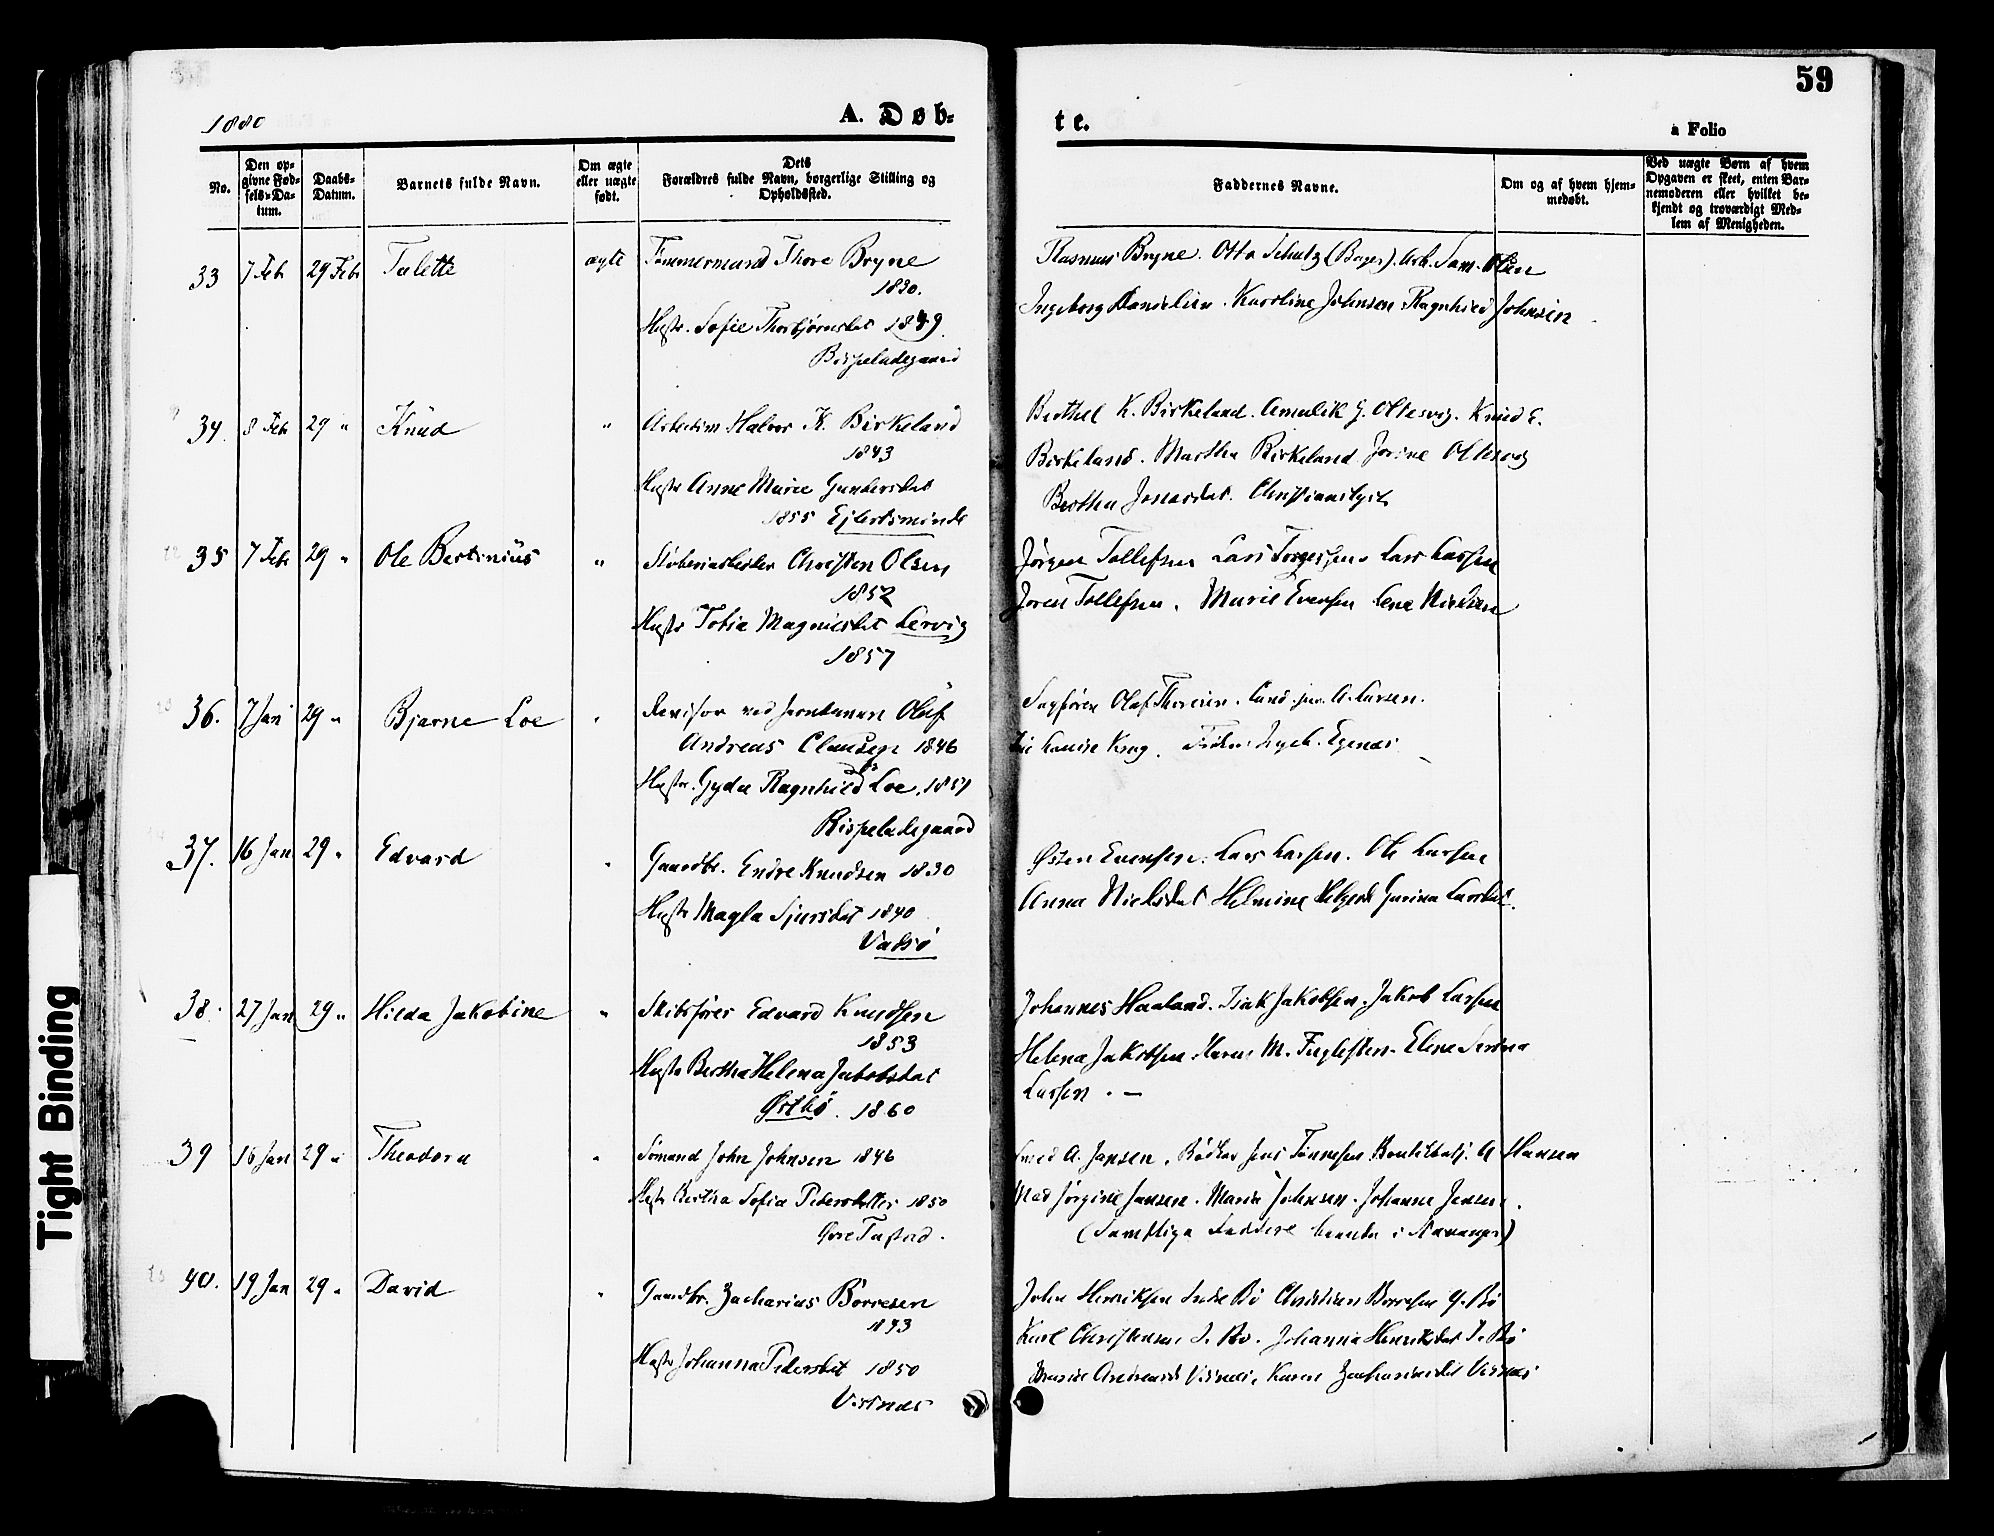 59
1880
A. Døb-
te.
a Folio
No.
Den op-
givne Fød-
sels-Da-
tum.
Daabs-
Datum.
Barnets fulde Navn.
Om ægte
eller uægte
født.
Dets
Forældres fulde Navn, borgerlige Stilling og
Opholdssted.
Faddernes Navne.
Om og af hvem hjem-
medøbt.
Ved uægte Børn af hvem
Opgaven er skeet, enten Bar-
nemoderen eller hvilket be-
kjendt og troværdigt Med-
lem af Menigheden.
33 7 Feb 29 Feb Talette ægte Tømmermand Thore Bryne
1830.
Hustr. Sofie Thorbjørnsdat 1849
Bispeladegaard
Rasmus Bryne. Otto Schulz (Bager). Arb. Sam. Olsen
Ingeborg Danielsen. Karoline Johnsen Ragnhild Johnsen
34. 8 Feb 29 " Knud " Arbeidsm Halvor K. Birkeland
1843
Hustr Anne Marie Gundersdat
1855 Ejlertsminde
Berthel K. Birkeland. Amalik G. Oltesvig. Knud E.
Birkeland. Martha Birkeland Jorine Oltesvig
Berthea Jonasdat.
35 7 Feb 29 " Ole Bertinius " Støberiarbeider Christen Olsen
1852
Hustr Tobia Magnusdat Lervig
1857
Jørgen Tollefsen Lars Torgersen Lars Larsen
Joren Tollefsen. Marie Evensen Lene Nielsen
36. 7 Jan 29 " Bjarne Loe " Revisor ved Jernbanen Oluf
Andreas Clausen 1846
Hustr. Gyda Ragnhild Loe, 1857
Bispeladegaard
Sagfører Olaf Thoresen. Cand. jur. A. Larsen.
Louise Krag. Egenæs
37. 16 Jan 29 " Edvard " Gaardbr. Endre Knudsen 1830
Hustr Magla Sjursdat 1840
Vadsø
Østen Evensen. Lars Larsen. Ole Larsen
Anna Nielsdat Helmine Gurina Larsdat.
38. 27 Jan 29 " Hilda Jakobine " Skibsfører Edvard Knudsen
1853
Hustr Bertha Helena Jakobsdat
Østbø. 1860
Johannes Haaland. Isak Jakobsen. Jakob Larsen
Helena Jakobsen. Karen M. Fuglesten. Elene Serina
Larsen. —
39 16 Jan 29 " Theodora " Sømand John Johnsen 1846
Hustr Bertha Sofia Pedersdatter 1850
Øvre Tasted.
Smed A. Jansen. Bødker Jens Tønnesen Boutikbetj. A Hansen
Mad Jørgine Jansen. Maria Johnsen. Johanne Jensen.
(Samtliga Faddere boende i Stavanger)
40. 19 Jan 29 " David " Gaardbr. Zacharias Børresen
1843
Hustr Johanna Pedersdat 1850
Visnæs
John Henriksen Indre Bø Christian Børresen Y. Bø
Karl Christensen I. Bø. Johanna Henriksdat I. Bø
Visnæs. Karen Zachariasdat Visnæs
Tight Binding